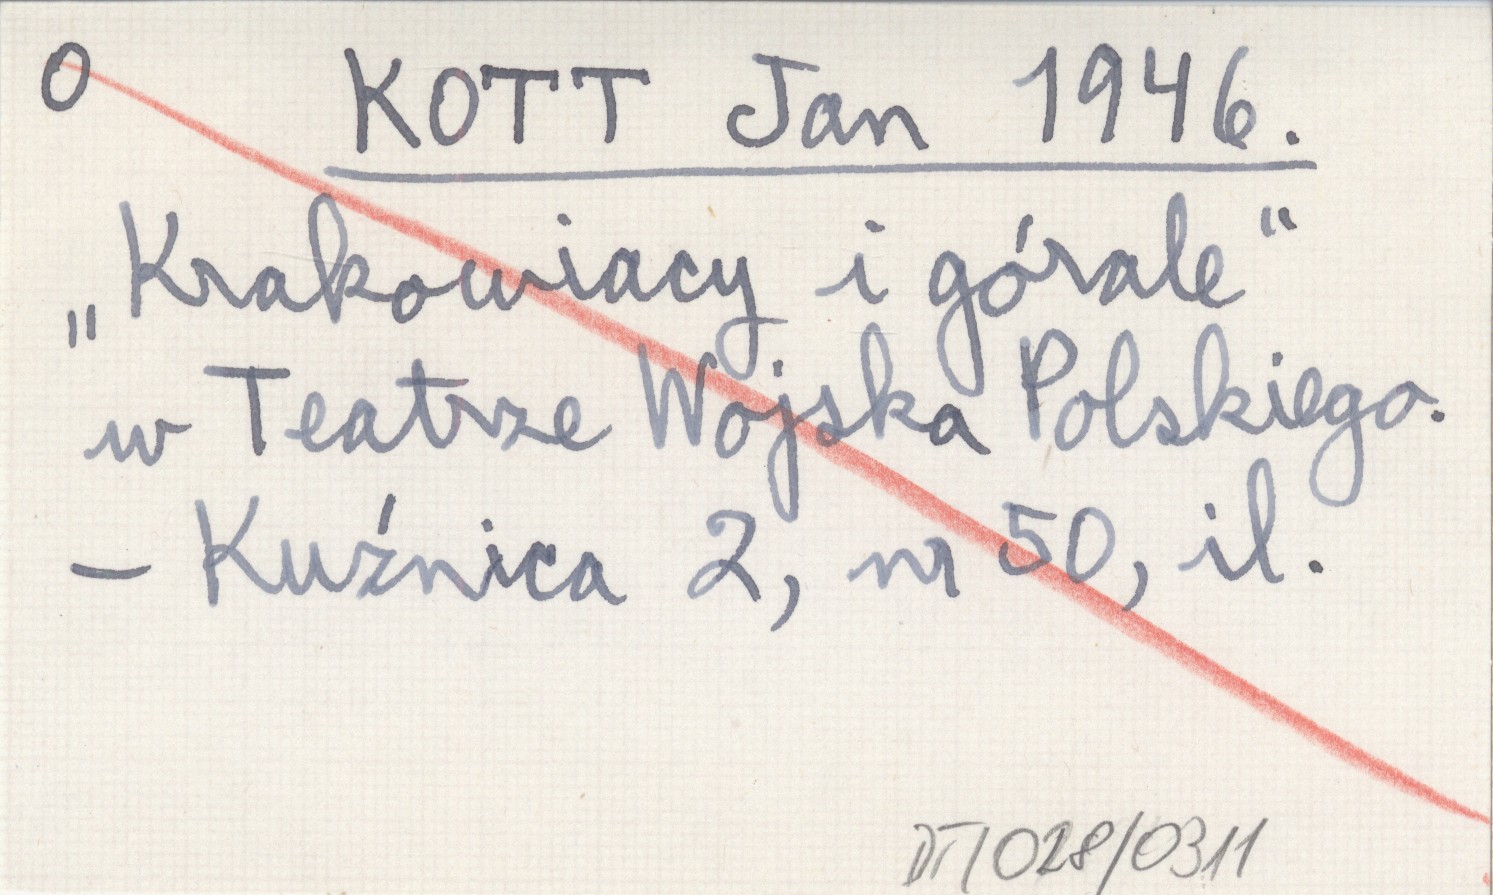 O KOTT Jan 1946.
„Krakowiacy i górale“
w Teatrze Wojska Polskiego.
– Kuźnica 2, nr 50, il.
DT/028/0311